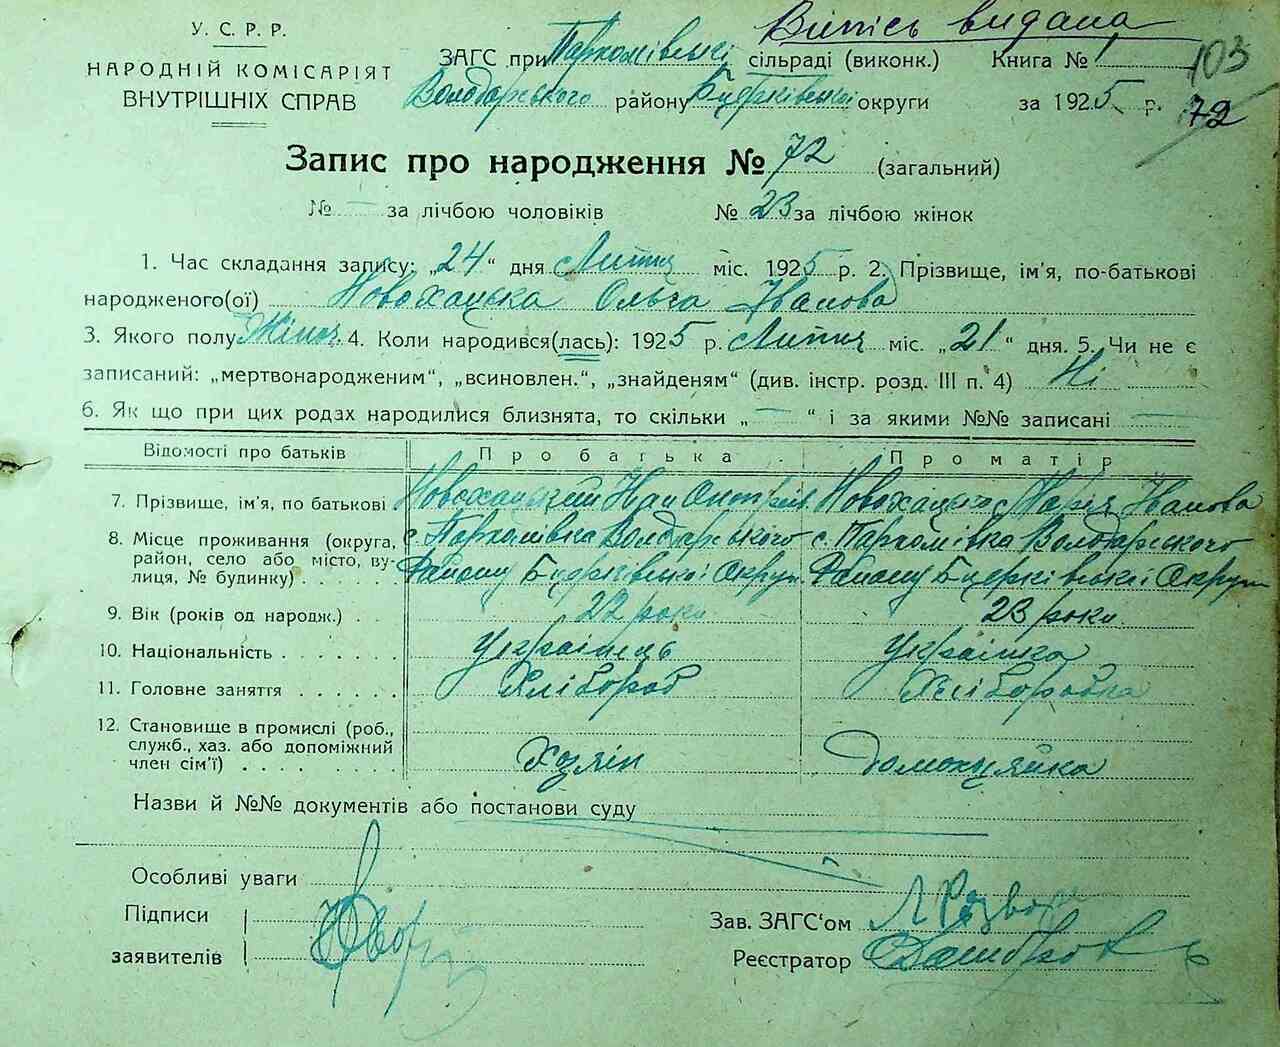 Випись видана
У. С. Р. Р.
НАРОДНІЙ КОМІСАРІЯТ
ВНУТРІШНІХ СПРАВ
ЗАГС при Пархомівські сільраді (виконк.) Книга № 1
103
Володарського району Бцерківської округи за 1925 р. 72
Запис про народження № 72 (загальний)
№ — за лічбою чоловіків № 23 за лічбою жінок
1. Час складання запису: „24“ дня Лютня міс. 1925 р. 2. Прізвище, ім'я, по-батькові
народженого(ої) Новохацька Ольга Іванова
3. Якого полу Жіноч. 4. Коли народився(лась): 1925 р. Лютня міс. „21“ дня. 5. Чи не є
записаний: „мертвонародженим“, „всиновлен.“, „знайденям“ (див. інстр. розд. III п. 4) Ні
6. Як що при цих родах народилися близнята, то скільки „ — “ і за якими №№ записані —
Відомості про батьків Про батька Про матір
7. Прізвище, ім'я, по батькові Новохацький Іван Новохацька Марія Іванова
8. Місце проживання (округа, с. Пархомівка Володарського с. Пархомівка Володарського
район, село або місто, ву-
лиця, № будинку) Району Бцерківської Округи Району Бцерківської Округи
9. Вік (років од народж.) 22 роки 23 роки
10. Національність Українець Українка
11. Головне заняття Хлібороб Хлібородка
12. Становище в промислі (роб.,
служб., хаз. або допоміжний Хозяін домохазяйка
член сім'ї)
Назви й №№ документів або постанови суду
Особливі уваги
Підписи Зав. ЗАГС'ом
заявителів Реєстратор